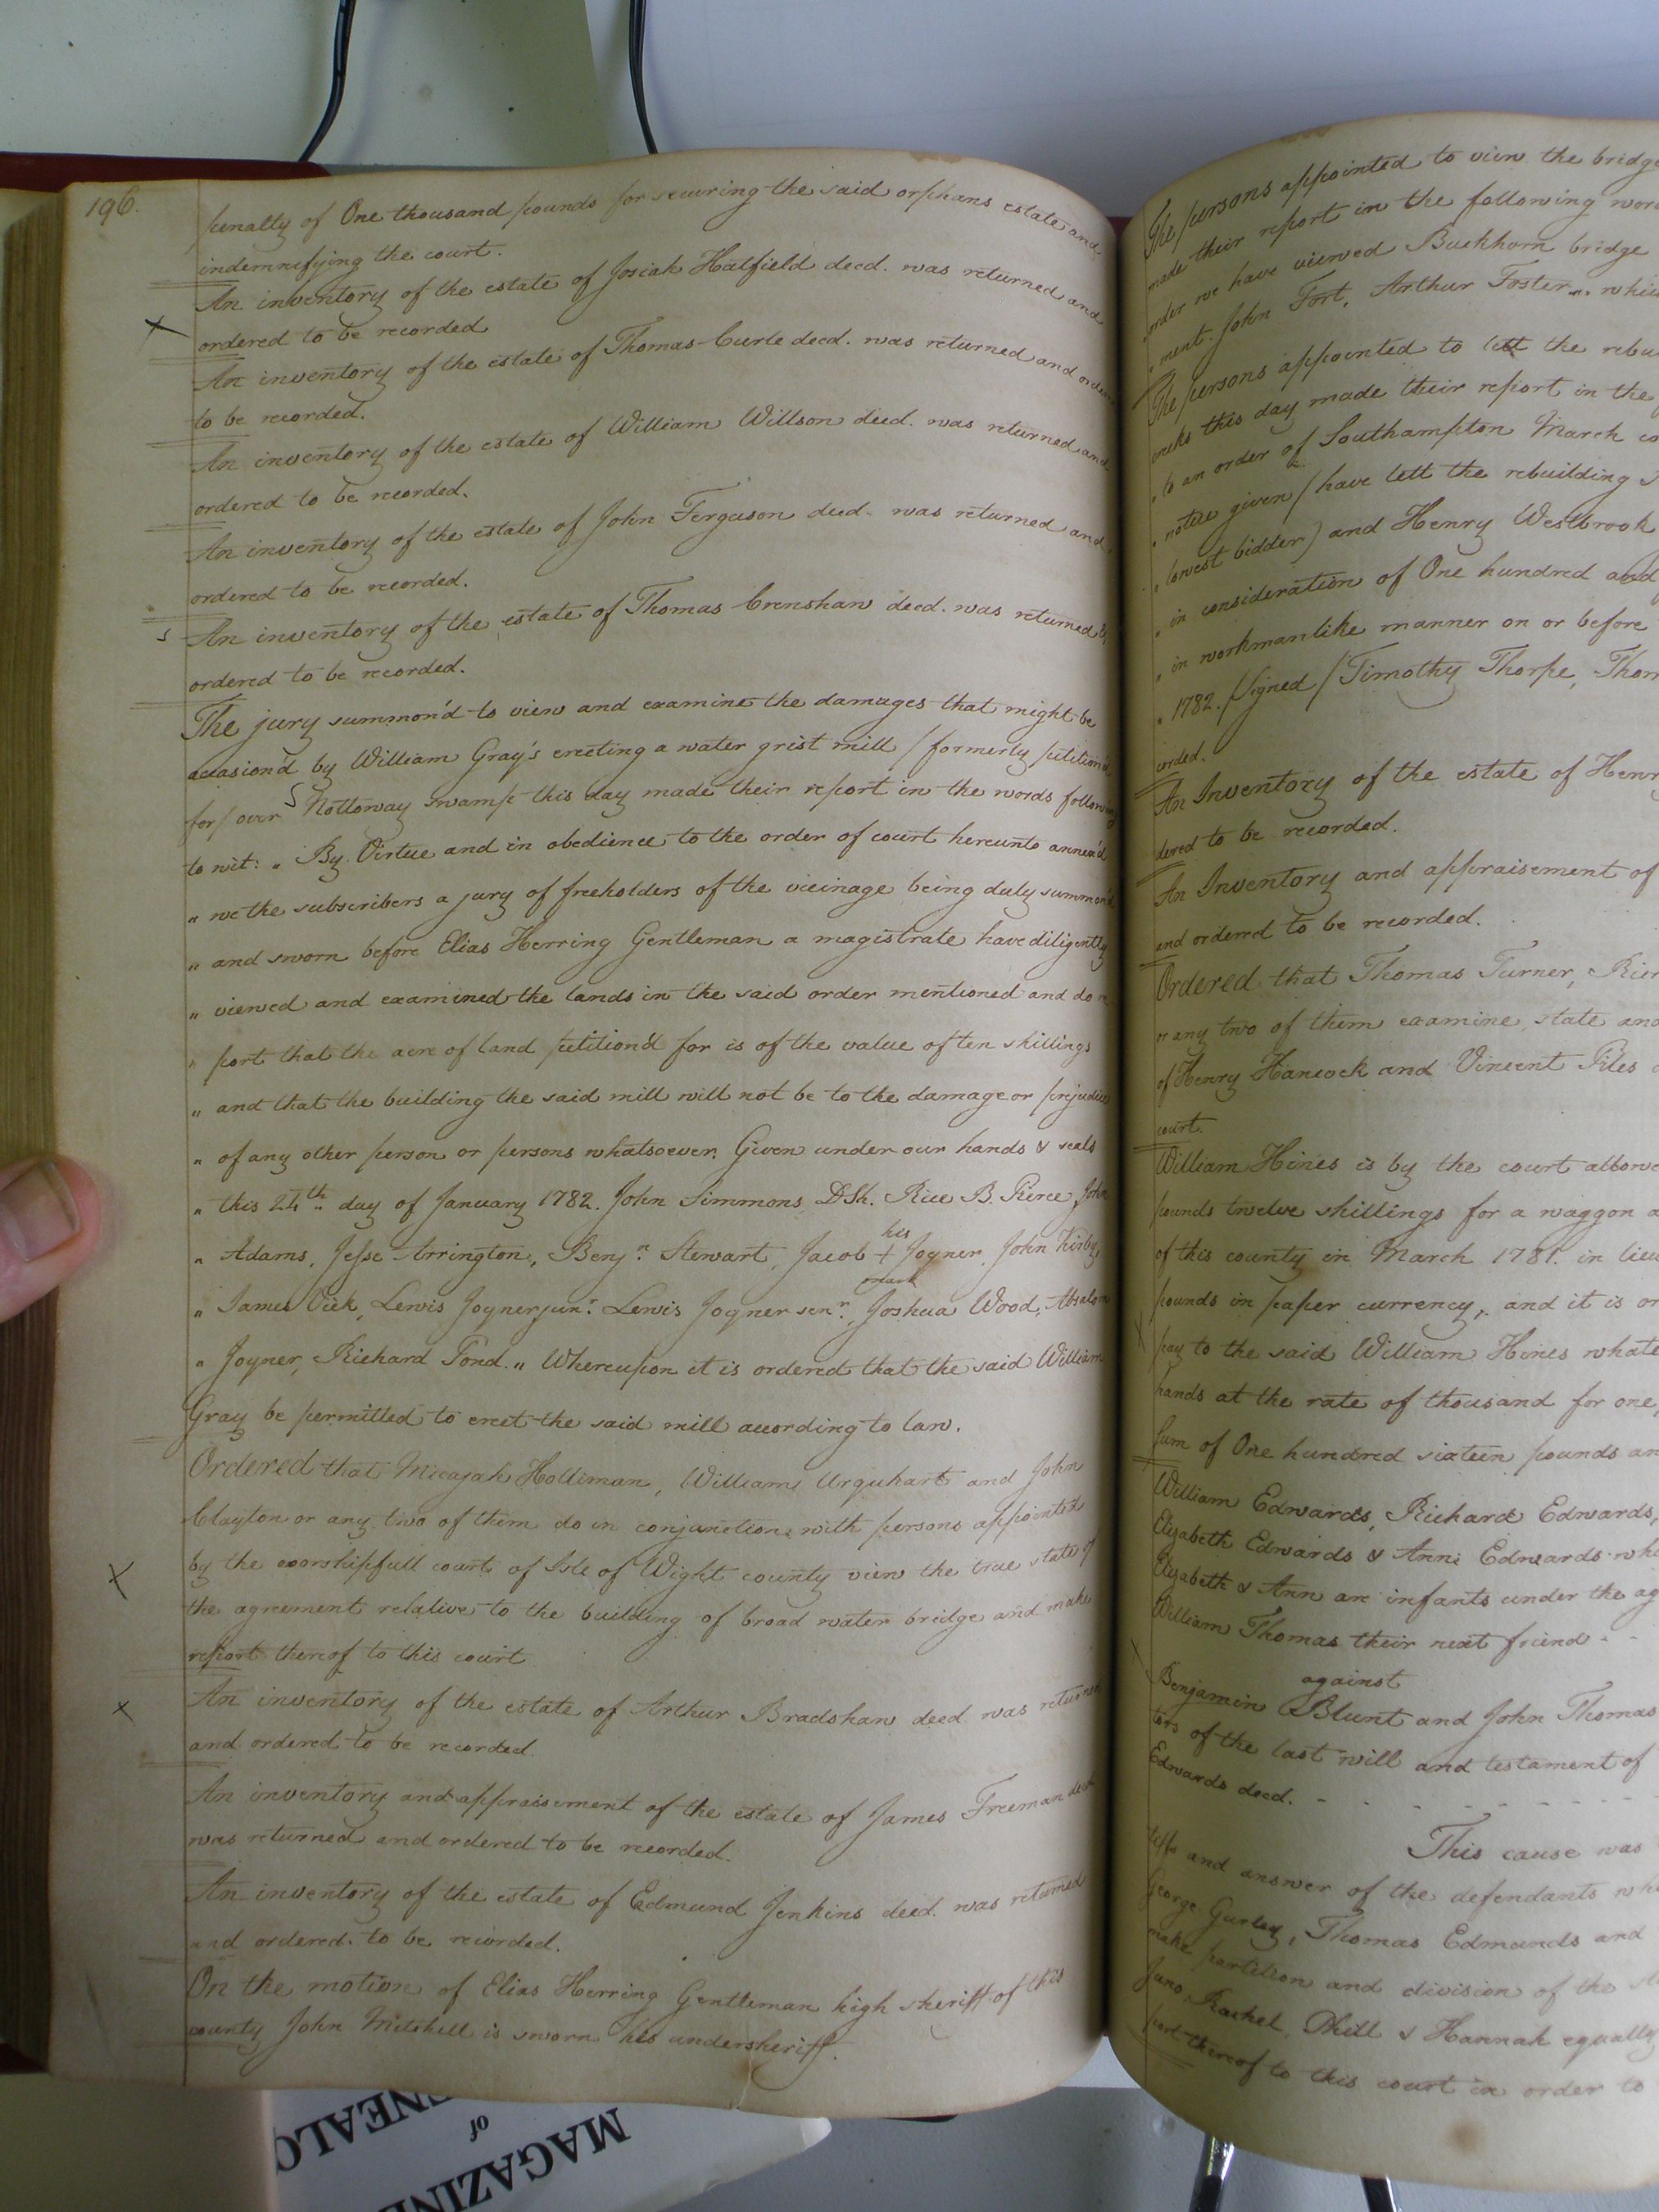 196.
penalty of One thousand pounds for securing the said orphans estate and
indemnifying the court.
An inventory of the estate of Josiah Hatfield decd. was returned and
ordered to be recorded
An inventory of the estate of Thomas Curle decd. was returned and
to be recorded.
An inventory of the estate of William Willson decd. was returned and
ordered to be recorded.
An inventory of the estate of John Ferguson decd. was returned and
ordered to be recorded.
An inventory of the estate of Thomas Crenshaw decd. was returned &
ordered to be recorded.
The jury summon'd to view and examine the damages that might be
occasion'd by William Gray's erecting a water grist mill / formerly petition'd
for / over Nottoway swamp this day made their report in the words following
to wit: „ By Virtue and in obedience to the order of court hereunto annex'd
„ we the subscribers a jury of freeholders of the vicinage being duly summon'd
„ and sworn before Elias Herring Gentleman a magistrate have diligently
„ viewed and examined the lands in the said order mentioned and do re
„ port that the acre of land petition'd for is of the value of ten shillings
„ and that the building the said mill will not be to the damage or prejudice
„ of any other person or persons whatsoever. Given under our hands & seals
„ this 24th day of January 1782. John Simmons DSh. Rice B. Pierce, John
„ Adams, Jesse Arrington, Benjn. Stewart, Jacob his + mark Joyner, John Kirby,
„ James Vick, Lewis Joyner junr. Lewis Joyner senr., Joshua Wood, Absalom
„ Joyner, Richard Pond. „ Whereupon it is ordered that the said William
Gray be permitted to erect the said mill according to law.
Ordered that Micajah Holliman, William Urquhart and John
Clayton or any two of them do in conjunction with persons appointed
by the worshipfull court of Isle of Wight county view the true state of
the agreement relative to the building of broad water bridge and make
report thereof to this court
An inventory of the estate of Arthur Bradshaw decd. was returned
and ordered to be recorded.
An inventory and appraisement of the estate of James Freeman decd
was returned and ordered to be recorded.
An inventory of the estate of Edmund Jenkins decd. was returned
and ordered to be recorded.
On the motion of Elias Herring Gentleman high sheriff of this
county John Mitchell is sworn his undersheriff.
The persons appointed to view the bridge
made their report in the following
order we have viewed Buckhorn bridge
„ ment. John Fort, Arthur Foster „.
The persons appointed to lett the
this day made their report in the
„ to an order of Southampton March
„ notice given / have lett the rebuilding
„ lowest bidder) and Henry Westbrook
„ in consideration of One hundred and
„ in workmanlike manner on or before
„ 1782. Signed / Timothy Thorpe,
corded.
An Inventory of the estate of
dered to be recorded.
An Inventory and appraisement of
and ordered to be recorded.
Ordered that Thomas Turner,
or any two of them examine state and
of Henry Hancock and Vincent Piles
court.
William Hines is by the court
pounds twelve shillings for a waggon
of this county in March 1781. in
pounds in paper currency, and it is
pay to the said William Hines
hands at the rate of thousand for one
Sum of One hundred sixteen pounds
William Edwards, Richard Edwards,
Elizabeth Edwards & Ann Edwards
Elizabeth & Ann are infants under the
William Thomas their next friend - -
against
Benjamin Blunt and John Thomas
tors of the last will and testament of
Edwards decd. - - - - - - -
This cause was
tiffs and answer of the defendants
George Gurley, Thomas Edmunds and
make partition and division of the
Juno, Rachel, Phill & Hannah equally
port thereof to this court in order to
MAGAZINE
of